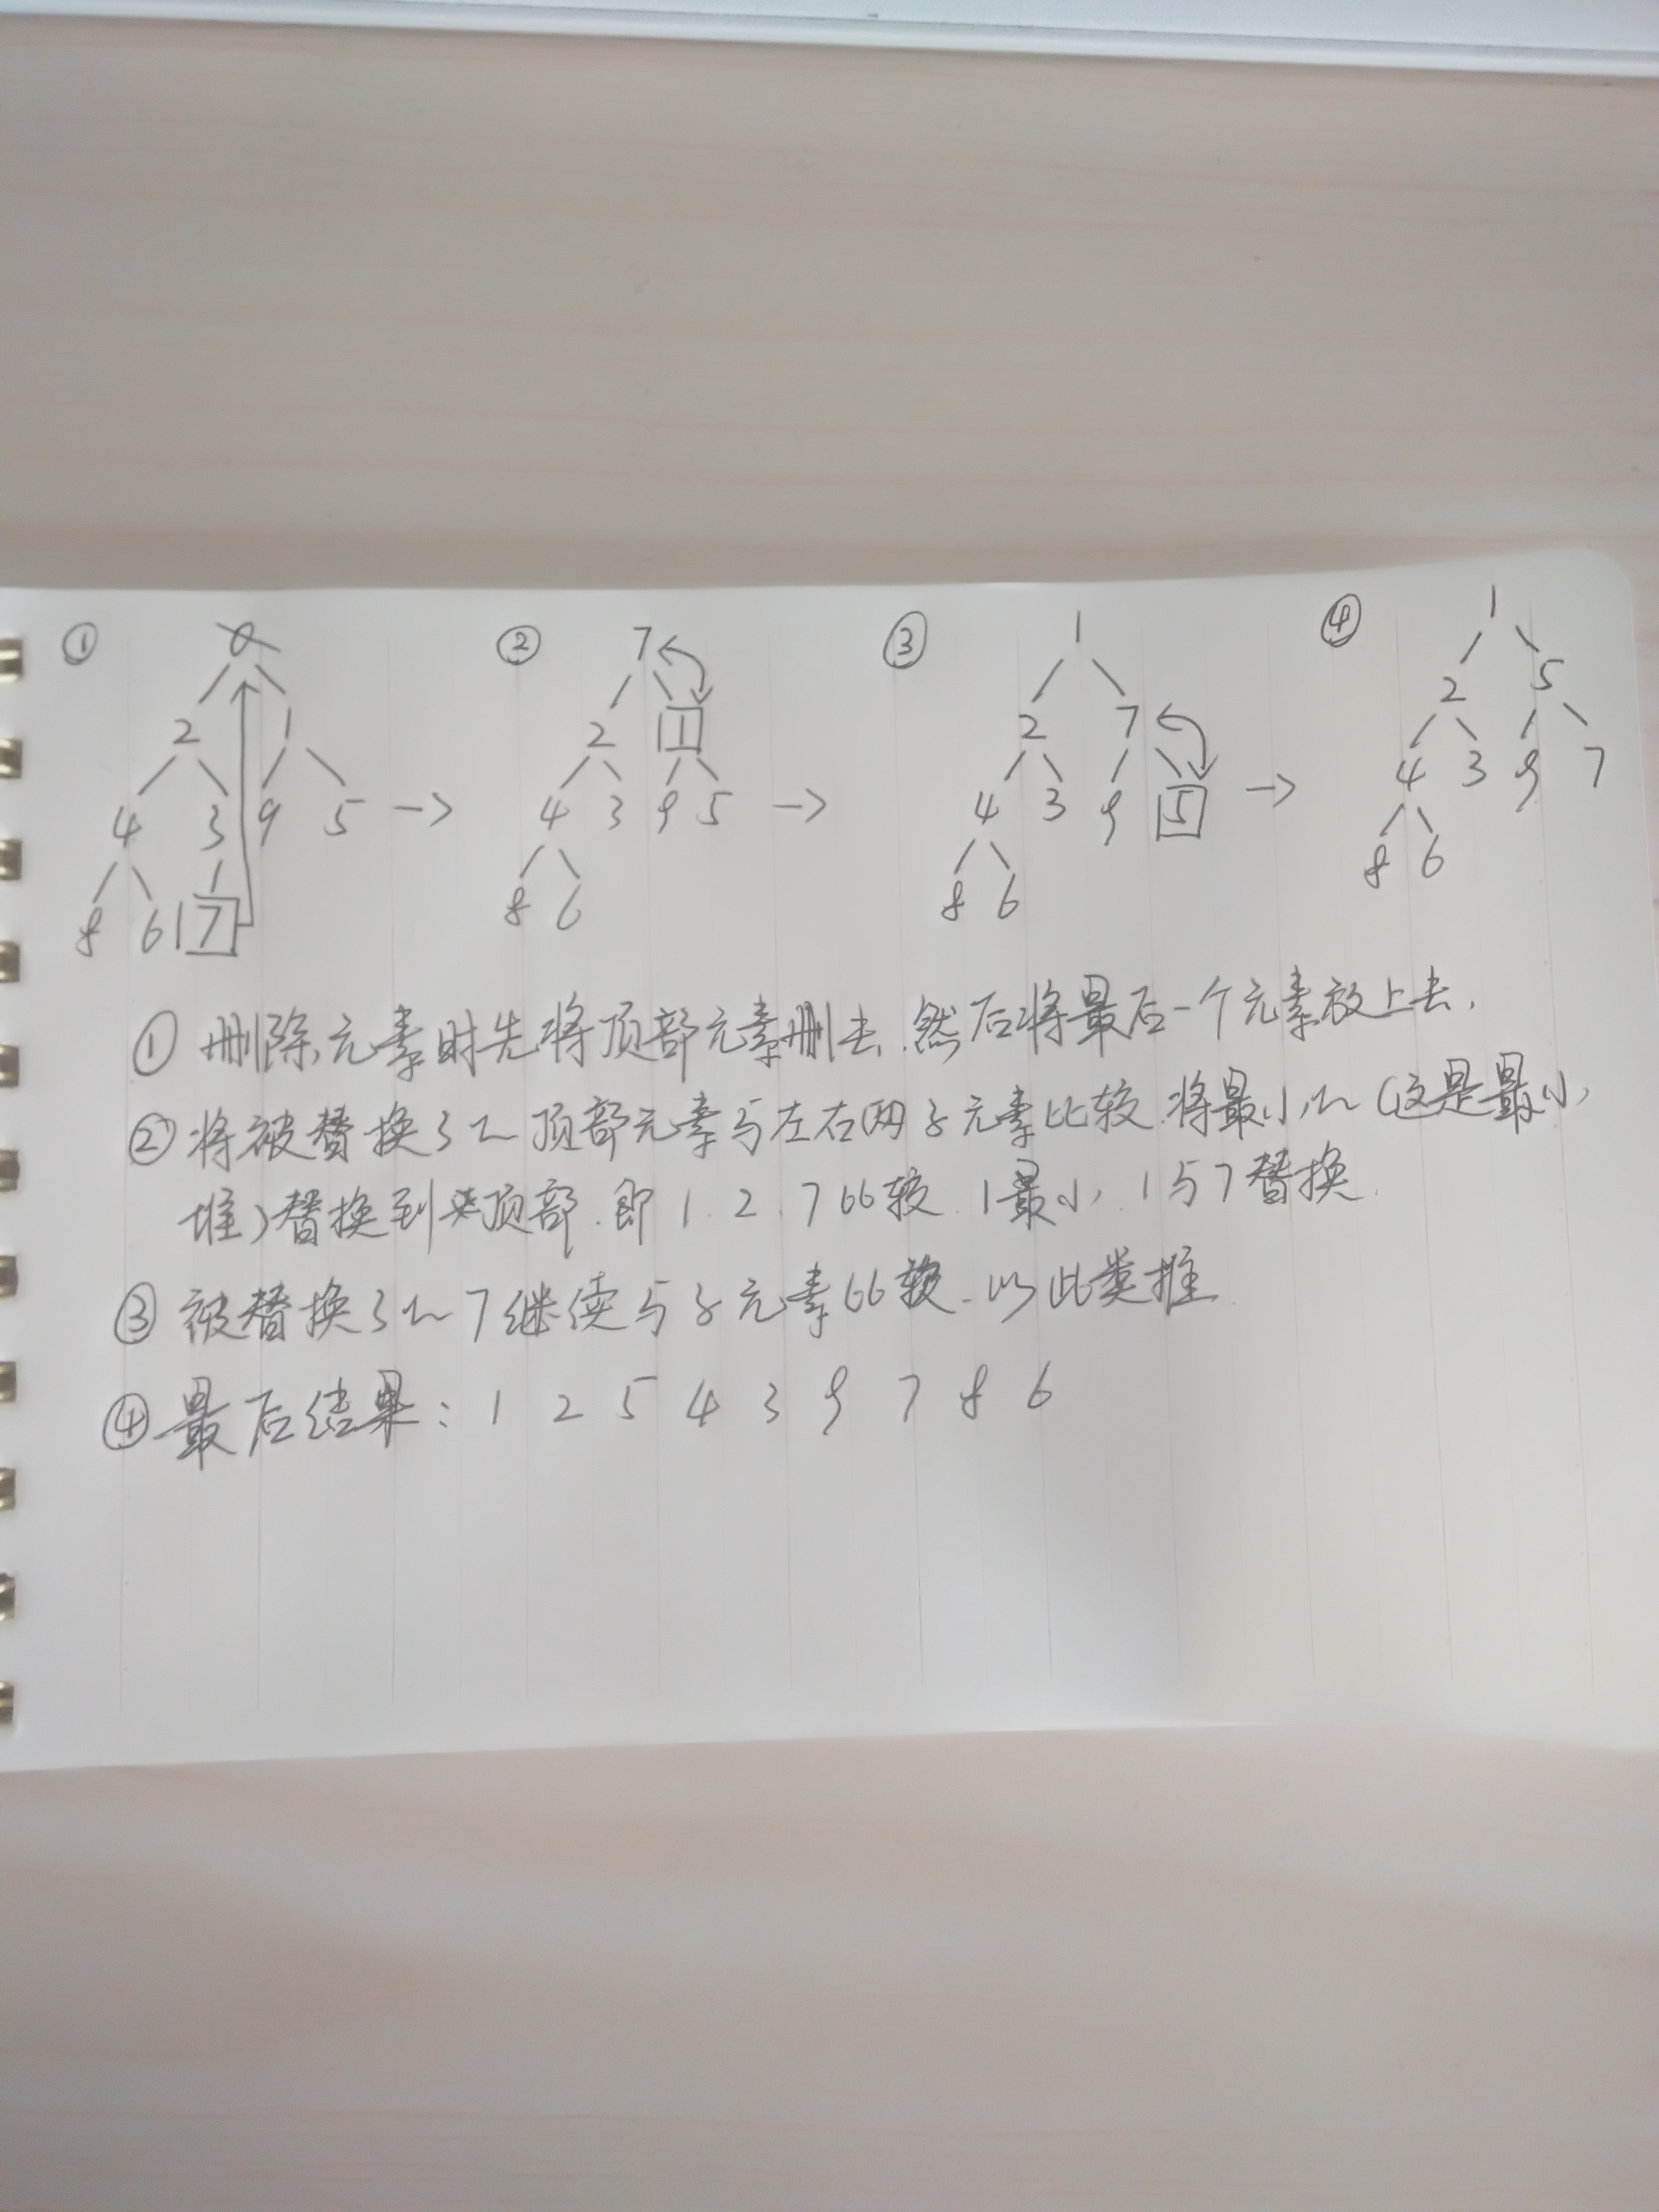 ① ② ③ ④
0 7 1 1
2 1 2 1 2 7 2 5
4 3 9 5 → 4 3 9 5 → 4 3 9 5 → 4 3 9 7
8 6 7 8 6 8 6 8 6
① 删除元素时先将顶部元素删去.然后将最后一个元素放上去.
② 将被替换了的顶部元素与左右两子元素比较.将最小的(这是最小
堆)替换到顶部.即1.2.7比较.1最小,1与7替换.
③ 被替换了的7继续与子元素比较.以此类推
④ 最后结果: 1 2 5 4 3 9 7 8 6